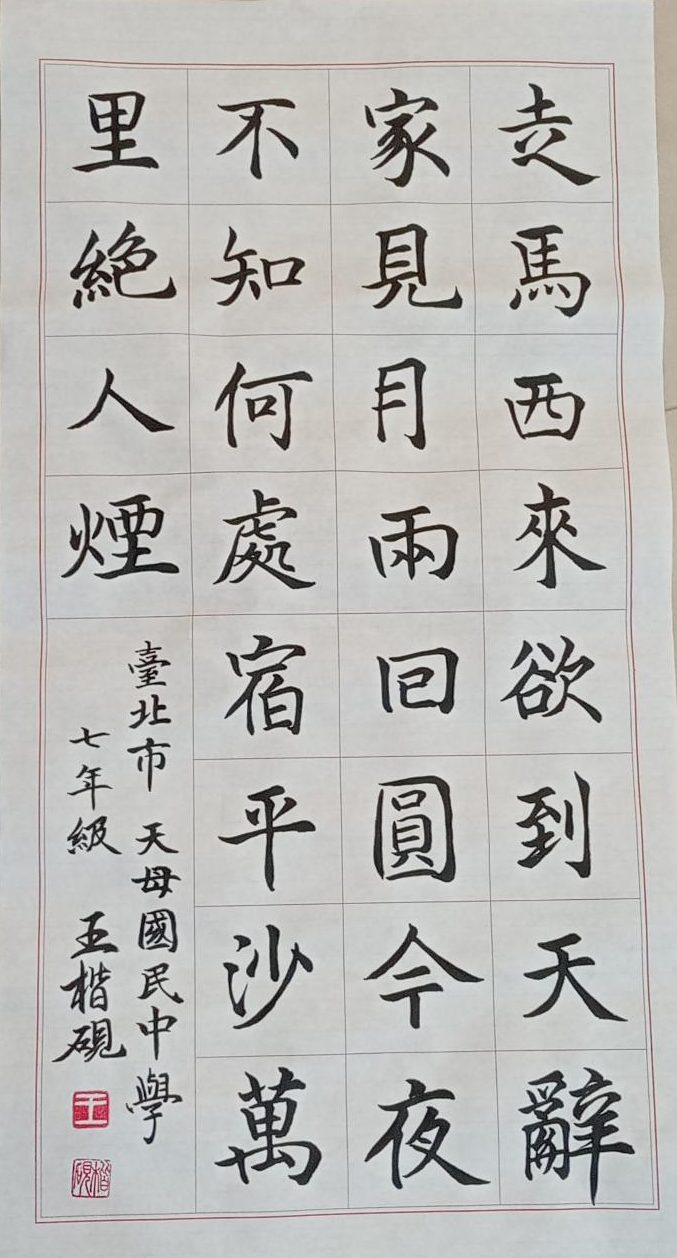 走馬西來欲到天辭
家見月兩回圓今夜
不知何處宿平沙萬
里絕人煙
臺北市 天母國民中學
七年級 王楷硯
王
楷硯